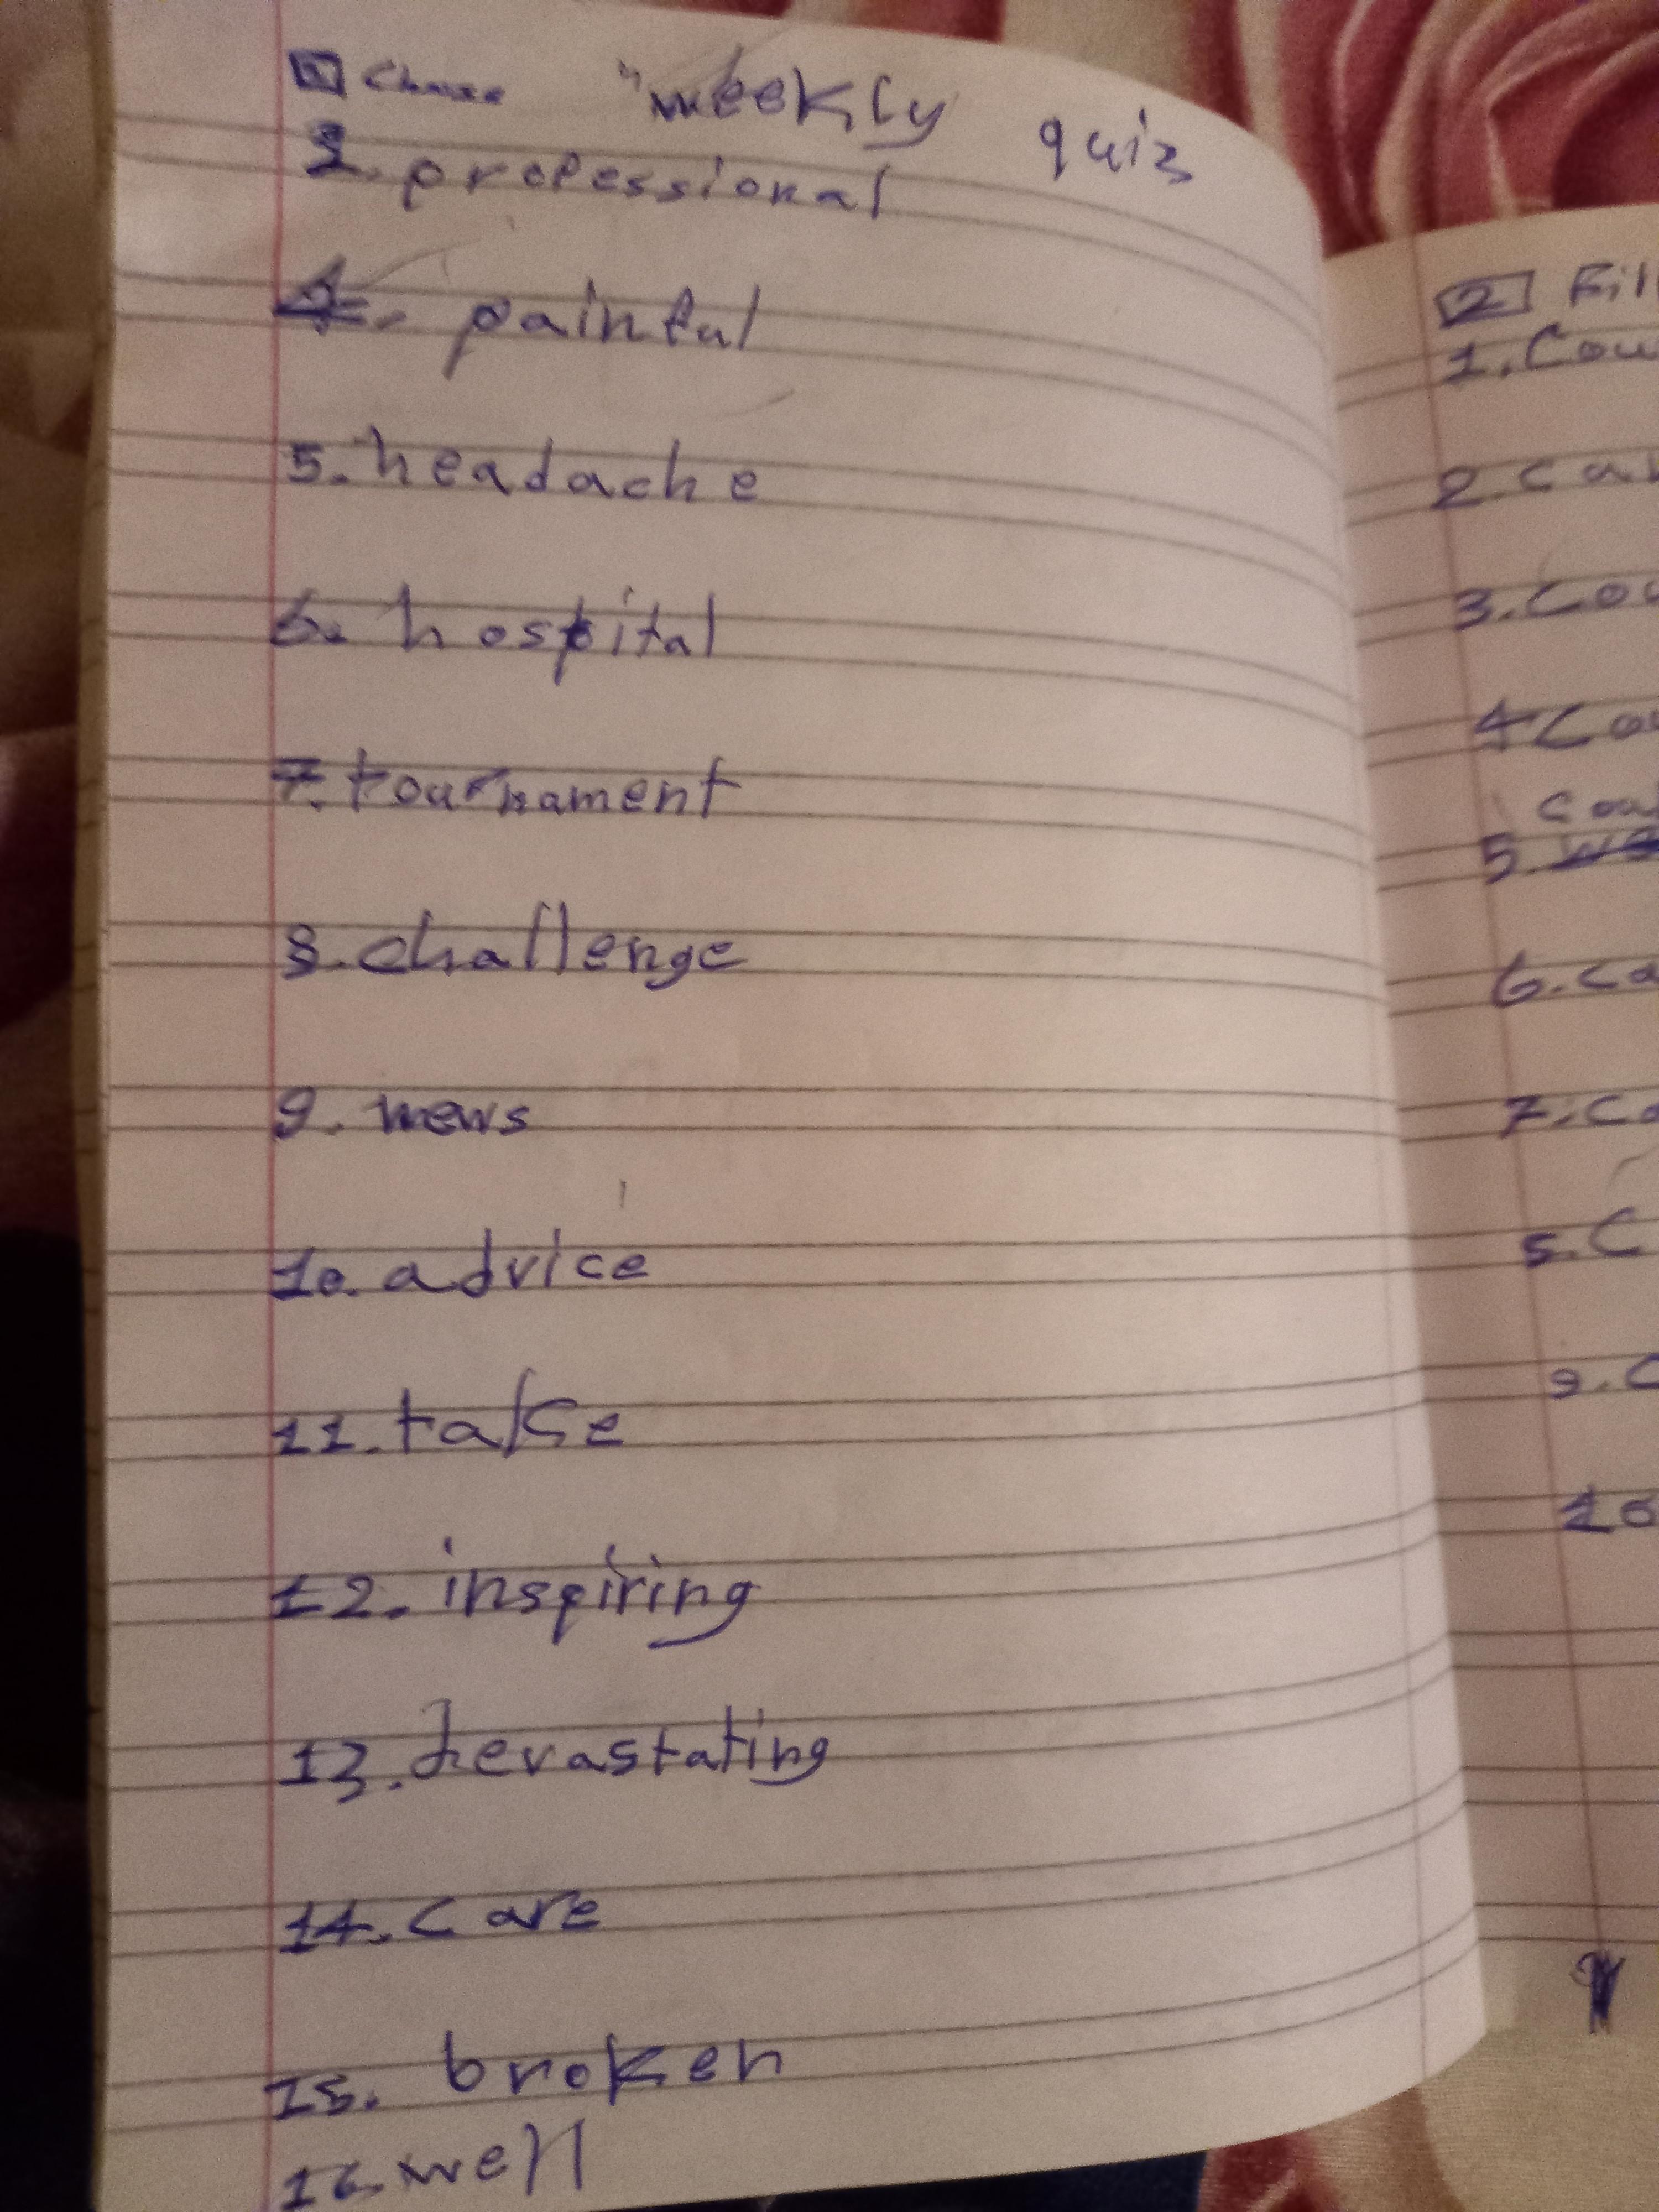 1 Choose "weekly quiz
3. professional
4. painful
5. headache
6. hospital
7. tournament
8. challenge
9. news
10. advice
11. take
12. inspiring
13. devastating
14. care
15. broken
16. well
2 Fill
1. Cou
2. Ca
3. Cou
4 Cou
Cou
5.
6. Ca
7. Co
5. C
9. C
10